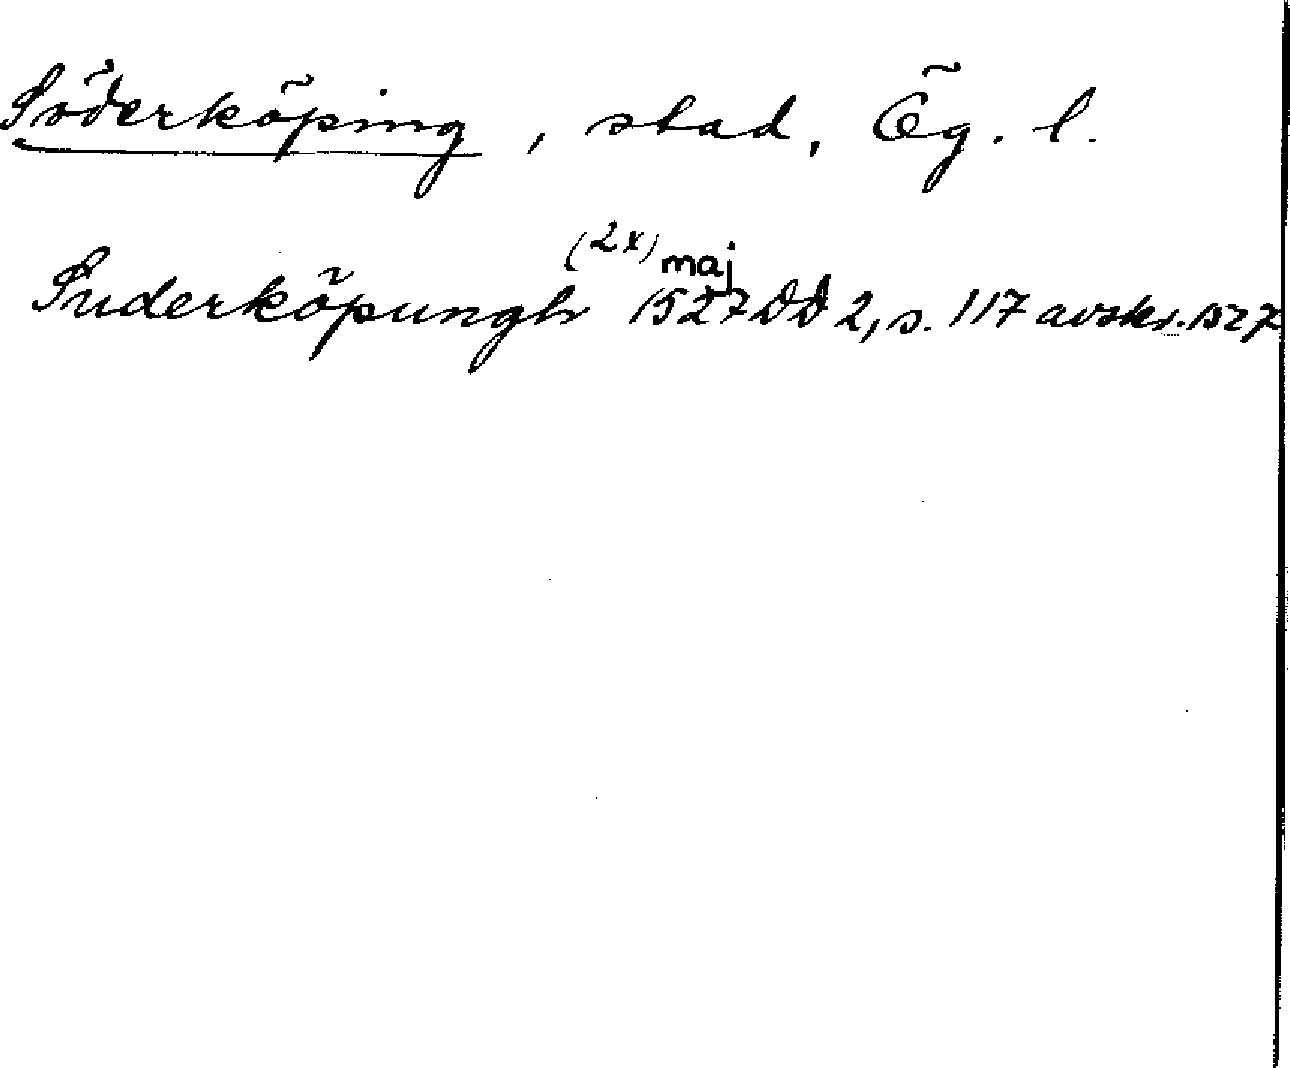 Söderköping, stad, Ög. l.
(2x) maj
Suderköpungh 1527 DD 2, s. 117 avskr. 1527